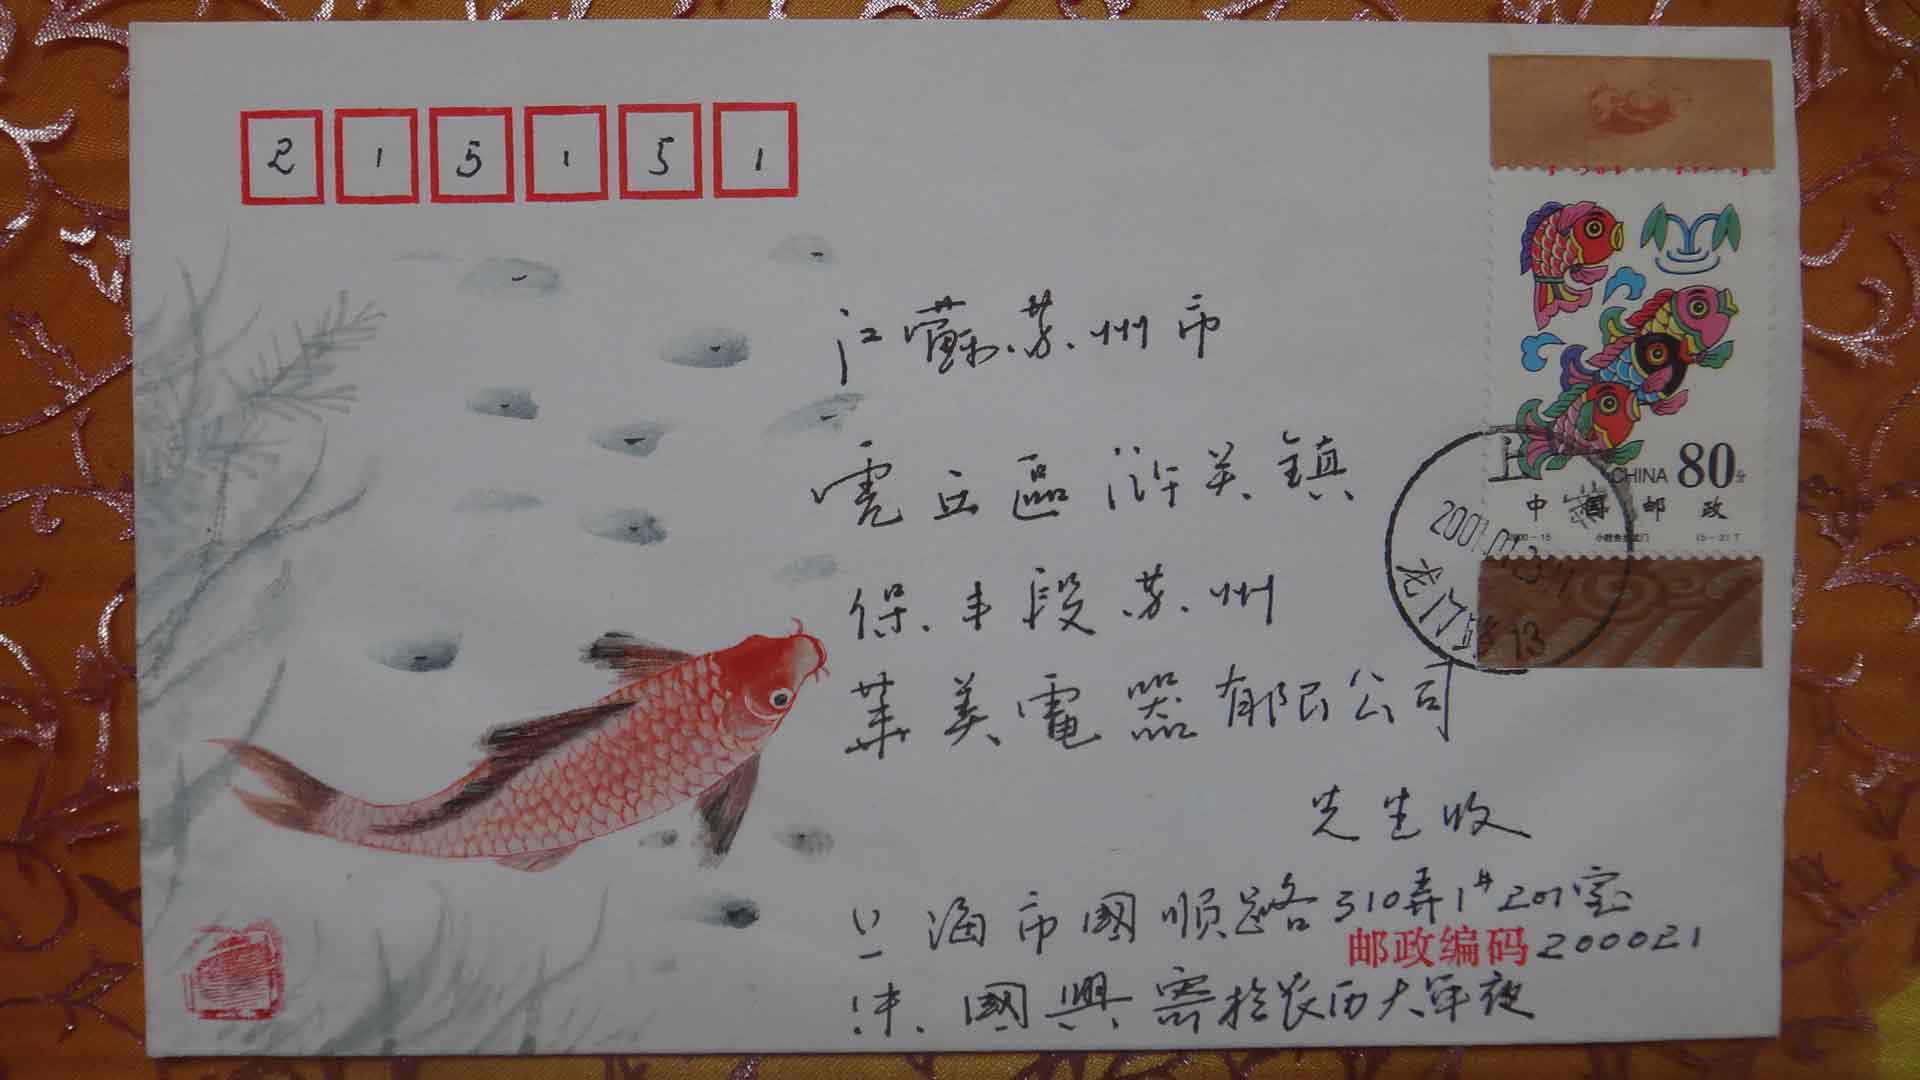 215151
江蘇苏州市
虎丘區浒关鎮
保丰段苏州
華美電器有限公司
先生收
上海市國順路310弄1#201室
邮政编码 200021
國興寄於农历大年夜
CHINA 80分
中国邮政
2000-15 小鲤鱼跳龙门 (5-2)T
上海
2001.01.23.11
龙门
13